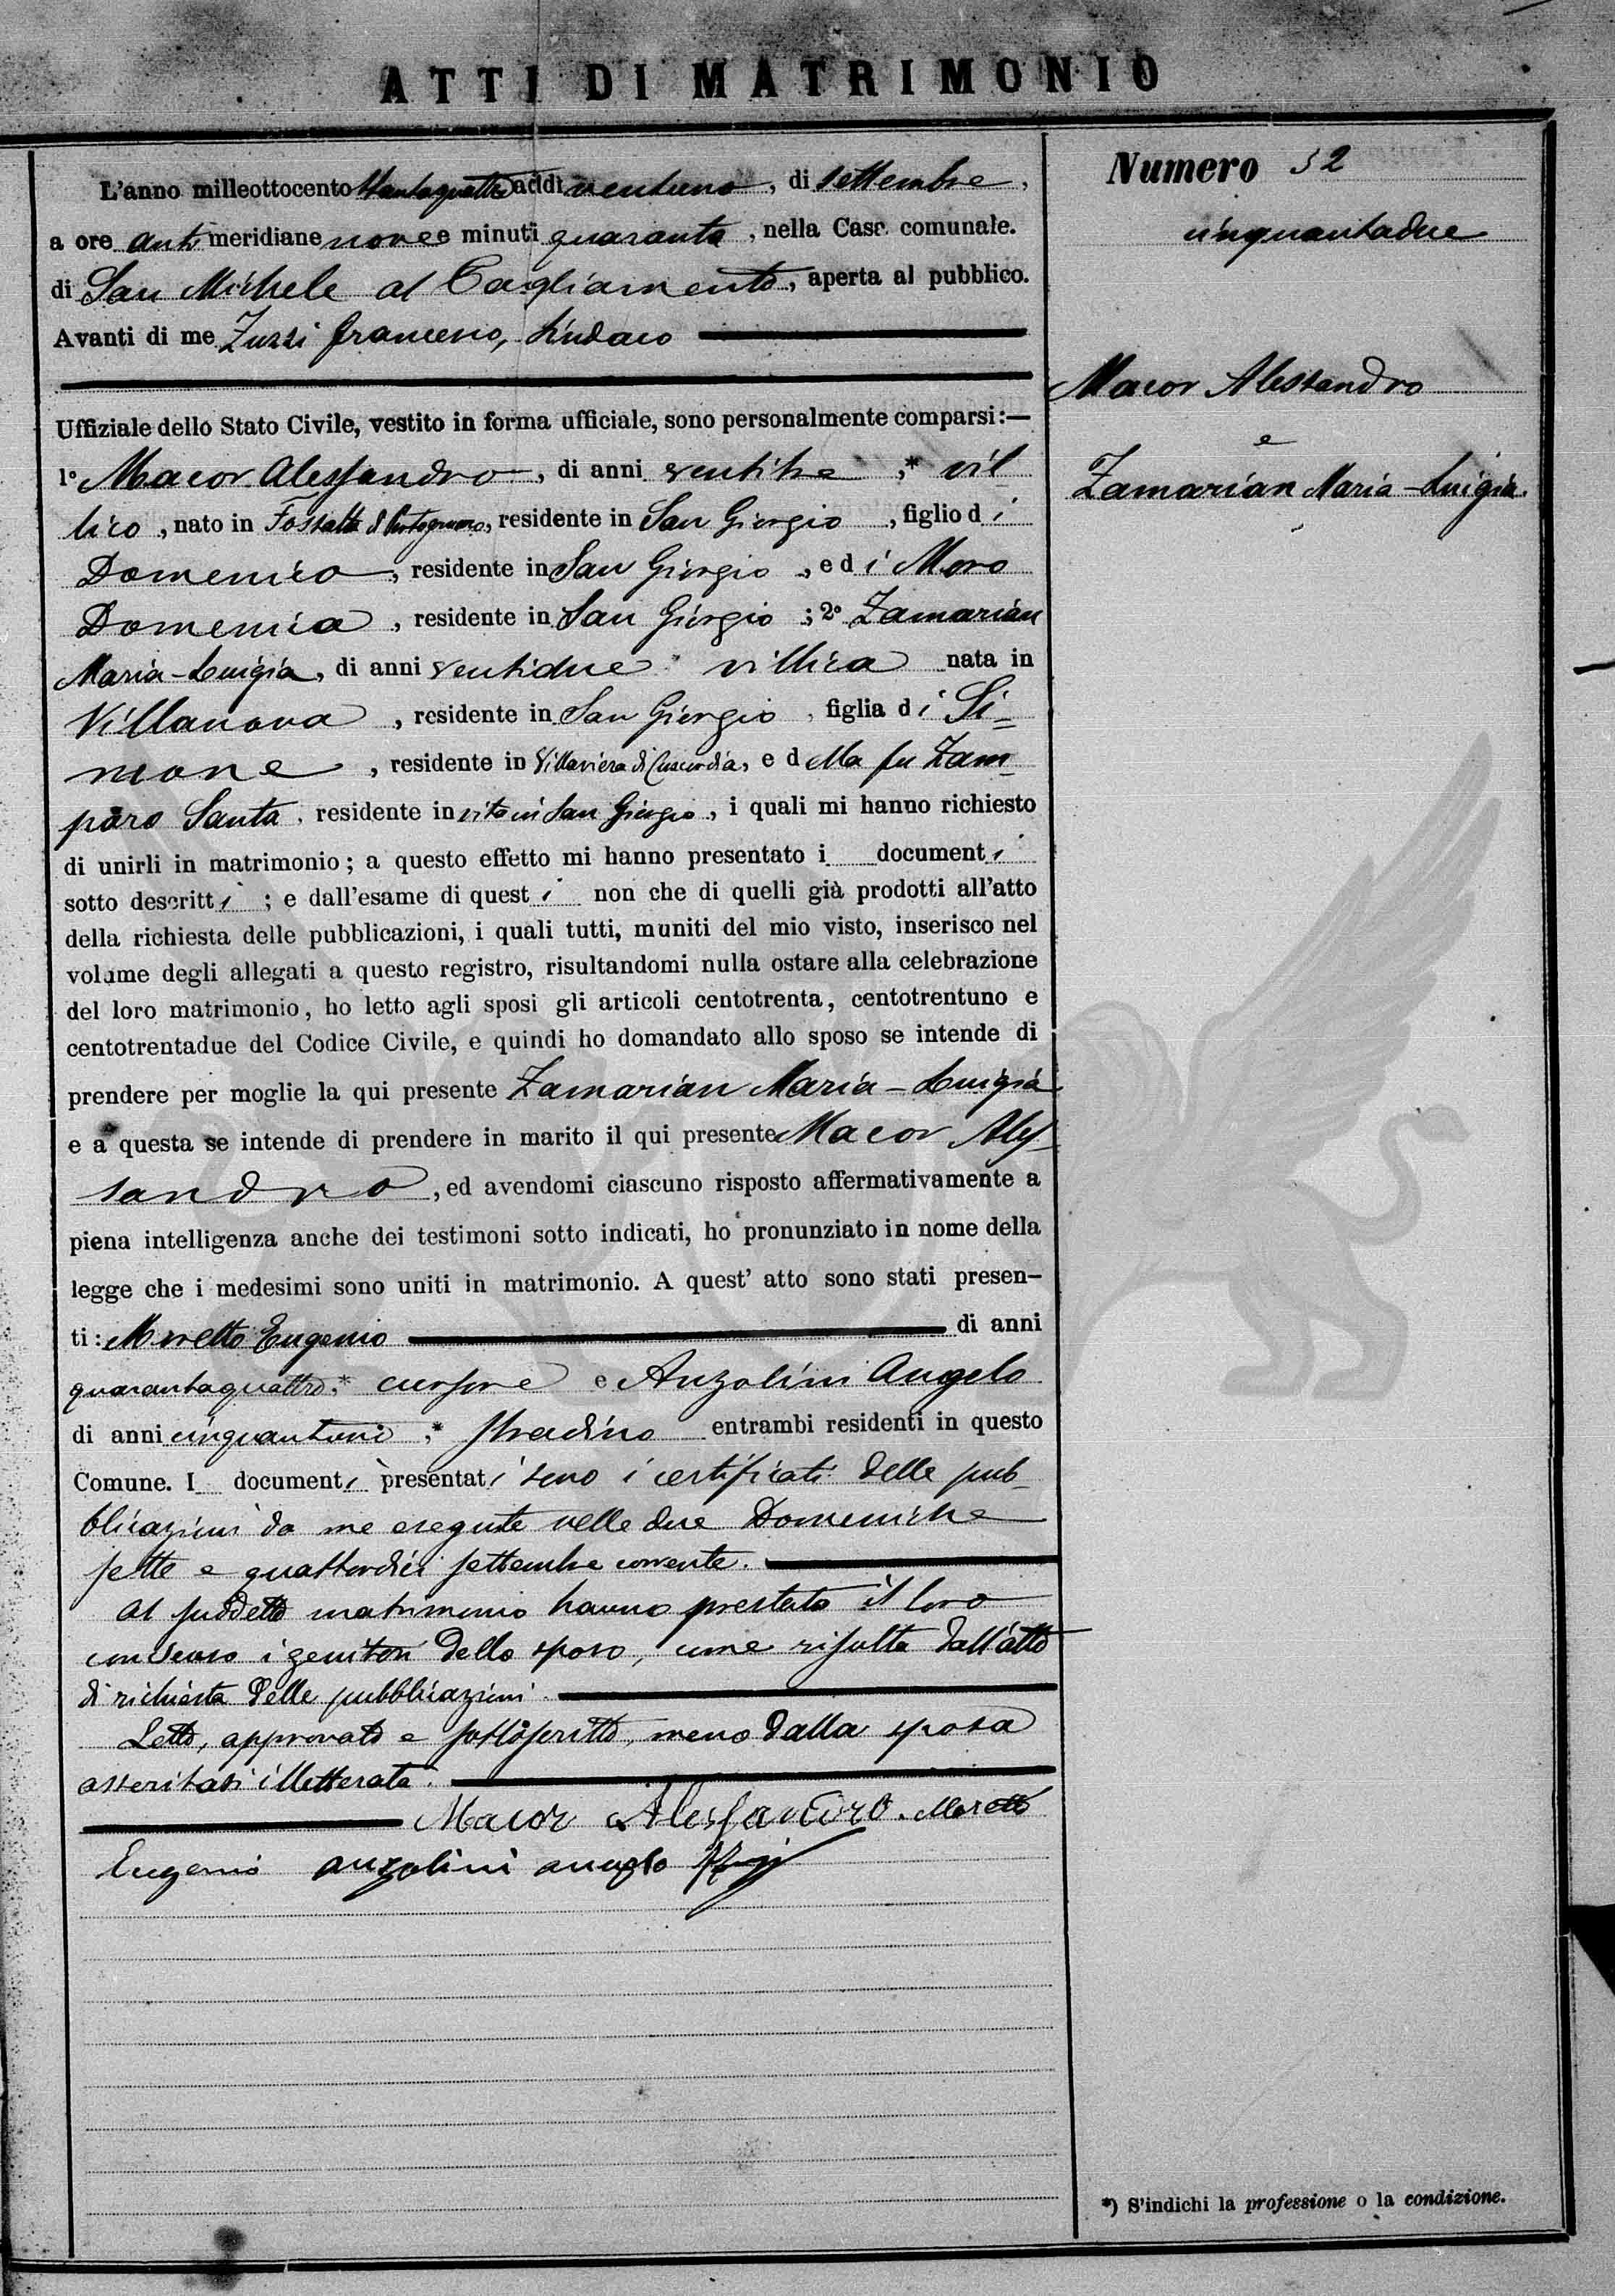 ATTI DI MATRIMONIO
Numero 52
cinquantadue
Macor Alessandro
e
Zamarian Maria-Luigia
L'anno milleottocento ottantaquattro addì ventuno, di settembre,
a ore anti meridiane nove e minuti quaranta, nella Casa comunale.
di San Michele al Tagliamento, aperta al pubblico.
Avanti di me Zuzzi Francesco, Sindaco
Uffiziale dello Stato Civile, vestito in forma ufficiale, sono personalmente comparsi:—
1° Macor Alessandro, di anni ventitre,* vil
lico, nato in Fossalta di Portogruaro, residente in San Giorgio, figlio di
Domenico, residente in San Giorgio, e di Moro
Domenica, residente in San Giorgio; 2° Zamarian
Maria-Luigia, di anni ventidue * villica nata in
Villanova, residente in San Giorgio, figlia di Si=
mone, residente in di Concordia, e della fu Zam=
paro Santa, residente in vita in San Giorgio, i quali mi hanno richiesto
di unirli in matrimonio; a questo effetto mi hanno presentato i documenti
sotto descritti; e dall'esame di questi non che di quelli già prodotti all'atto
della richiesta delle pubblicazioni, i quali tutti, muniti del mio visto, inserisco nel
volume degli allegati a questo registro, risultandomi nulla ostare alla celebrazione
del loro matrimonio, ho letto agli sposi gli articoli centotrenta, centotrentuno e
centotrentadue del Codice Civile, e quindi ho domandato allo sposo se intende di
prendere per moglie la qui presente Zamarian Maria-Luigia
e a questa se intende di prendere in marito il qui presente Macor Ales=
sandro, ed avendomi ciascuno risposto affermativamente a
piena intelligenza anche dei testimoni sotto indicati, ho pronunziato in nome della
legge che i medesimi sono uniti in matrimonio. A quest' atto sono stati presen-
ti: Moretto Eugenio di anni
quarantaquattro,* cursore e Anzolini Angelo
di anni cinquantuno,* stradino entrambi residenti in questo
Comune. I documenti presentati sono i certificati delle pub=
blicazioni da me eseguite nelle due Domeniche
sette e quattordici settembre corrente.
Al suddetto matrimonio hanno prestato il loro
consenso i genitori dello sposo, come risulta dall'atto
di richiesta delle pubblicazioni.
Letto, approvato e sottoscritto, meno dalla sposa
asseritasi illetterata.
Macor Alessandro. Moretto
Eugenio anzolini angelo
*) S'indichi la professione o la condizione.